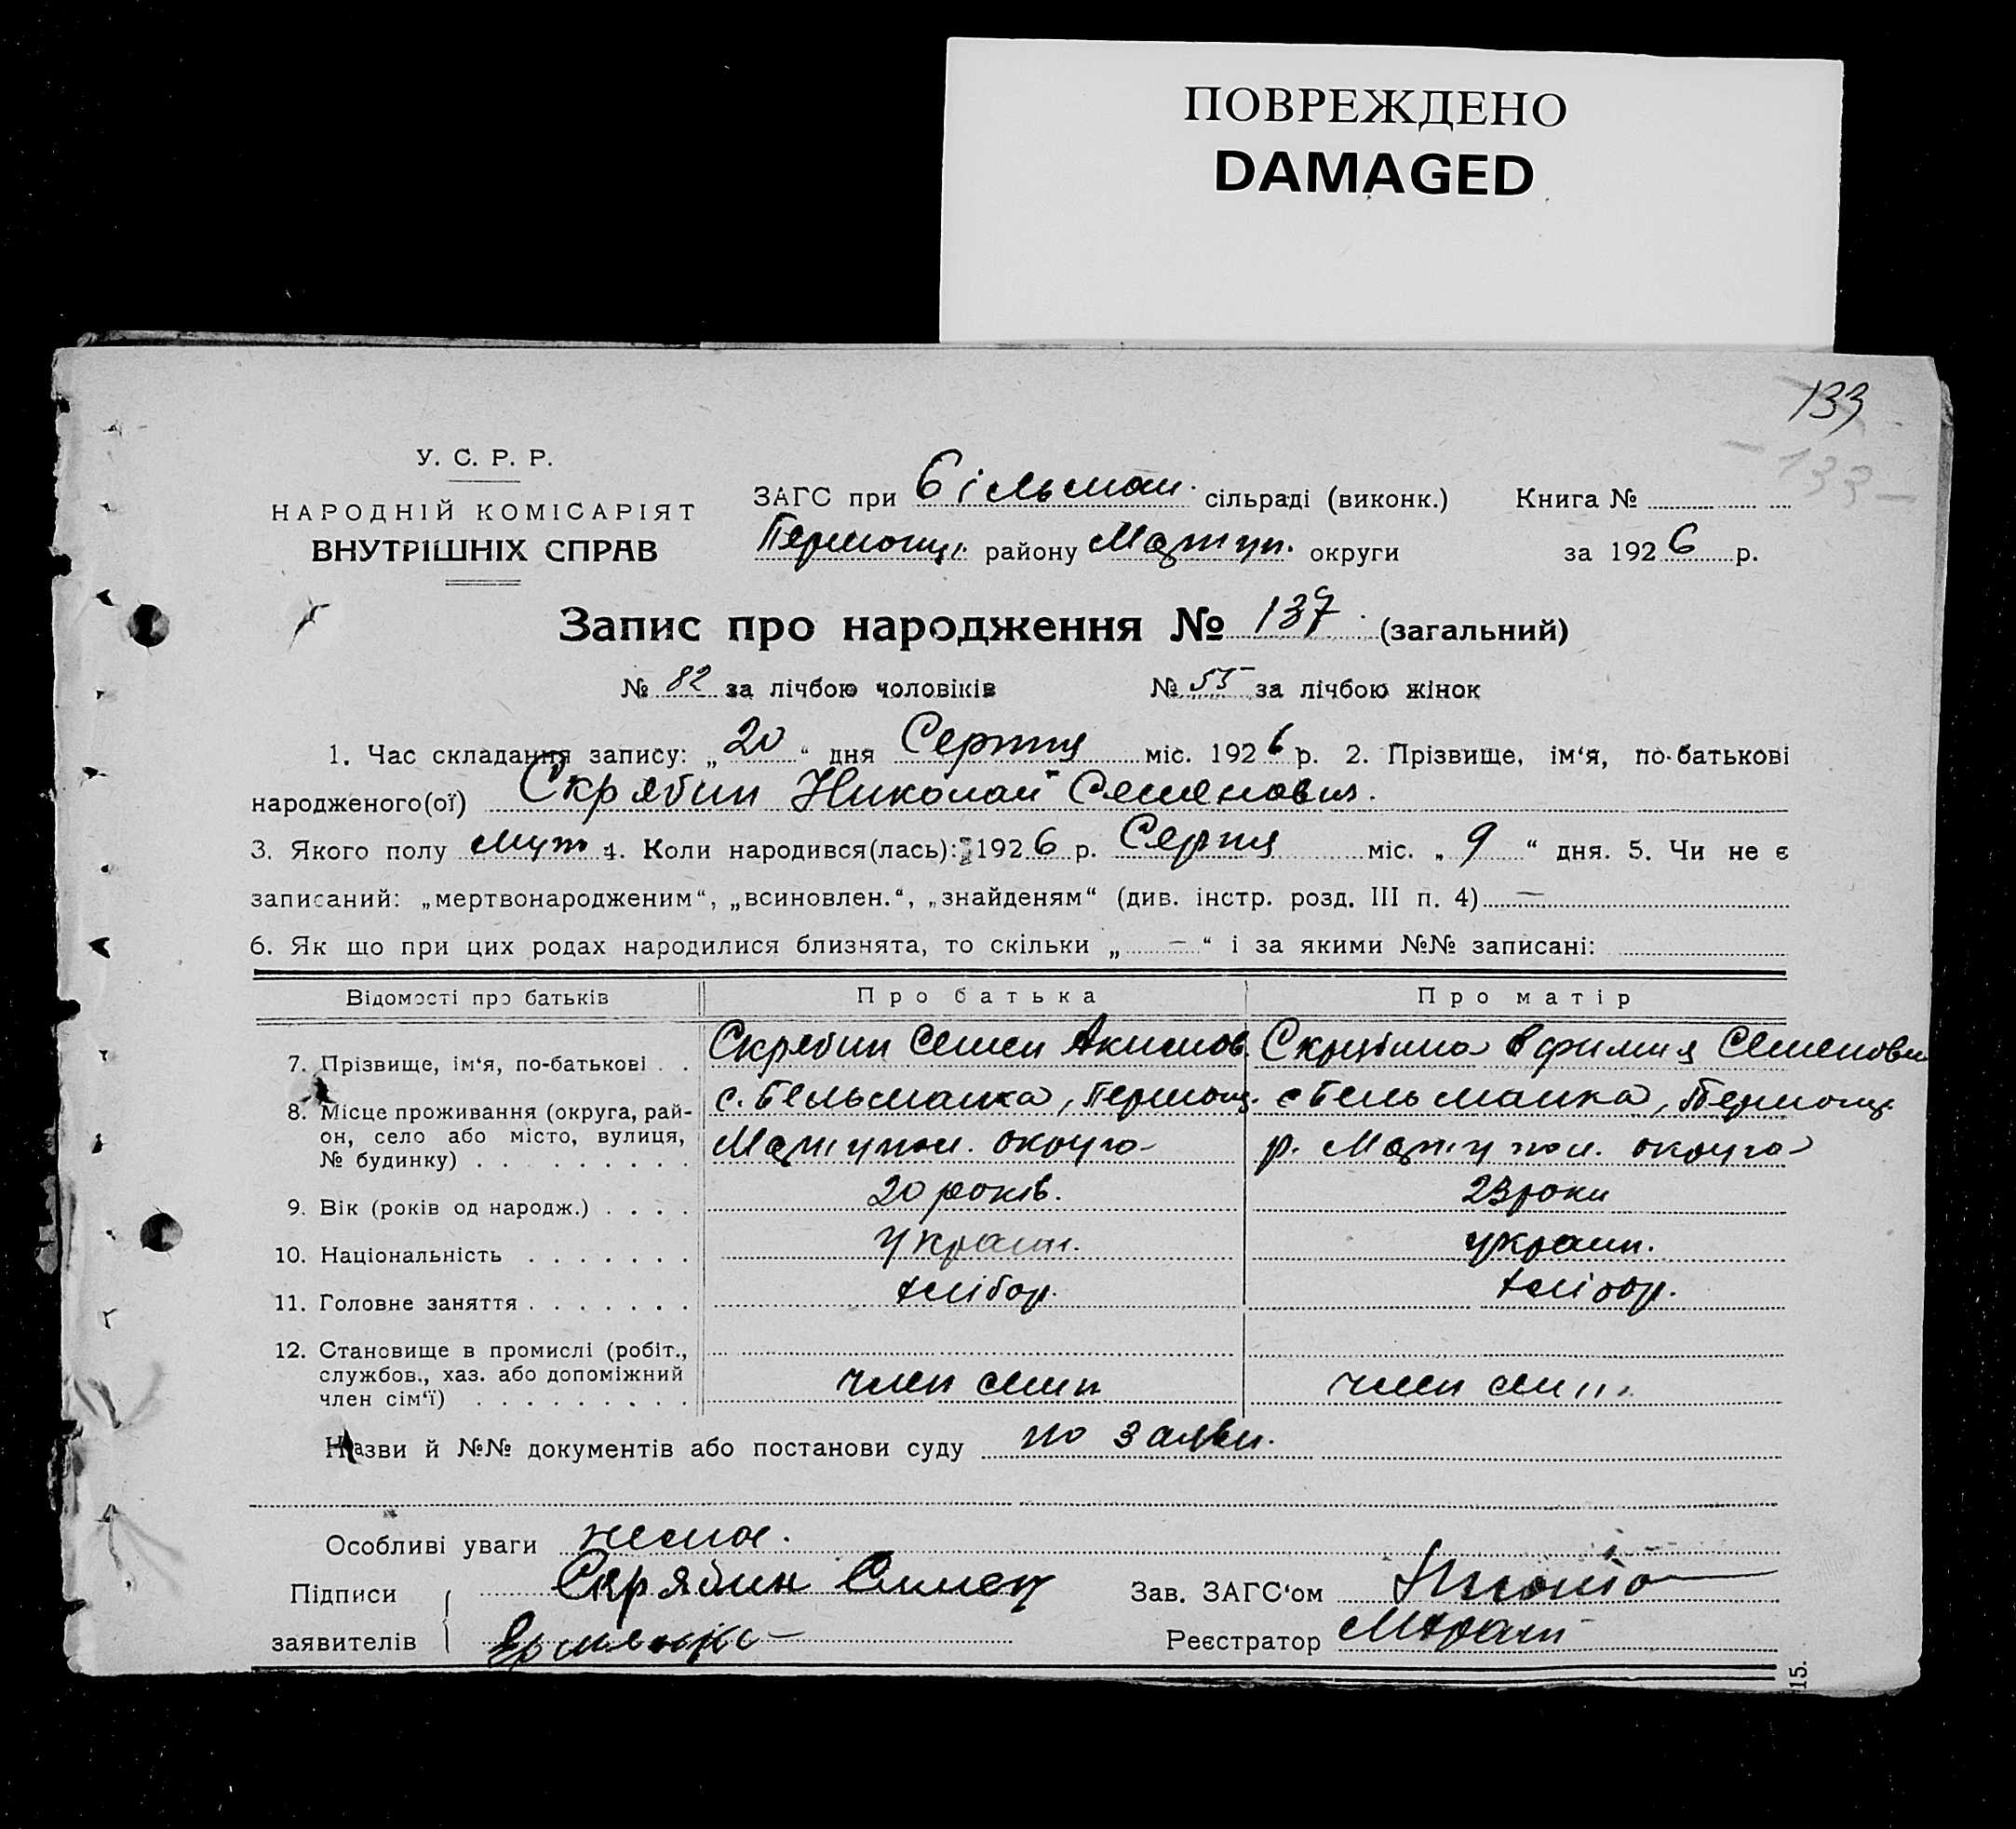 ПОВРЕЖДЕНО
DAMAGED
133
133
У. С. Р. Р.
НАРОДНІЙ КОМІСАРІЯТ
ВНУТРІШНІХ СПРАВ
ЗАГС при Більман. сільраді (виконк.) Книга №
району Маріуп. округи за 1926 р.
Запис про народження № 137 (загальний)
№ 82 за лічбою чоловіків № 55 за лічбою жінок
1. Час складання запису: „20“ дня Серпня міс. 1926 р. 2. Прізвище, ім‘я, по-батькові
народженого(ої) Скрябин Николай Семенович.
3. Якого полу муж 4. Коли народився(лась): 1926 р. Серпня міс. „9“ дня. 5. Чи не є
записаний: „мертвонародженим“, „всиновлен.“, „знайденям“ (див. інстр. розд. III п. 4) —
6. Як що при цих родах народилися близнята, то скільки „—“ і за якими №№ записані:
Відомості про батьків Про батька Про матір
7. Прізвище, ім‘я, по-батькові . . Скрябин Семен Акимов. Скрябина Ефимия Семеновн
8. Місце проживання (округа, рай-
он, село або місто, вулиця,
№ будинку) . . . . . . . . .
с. Бельманка, с Бельманка,
Маріупол. округа р. Маріупол. округа
9. Вік (років од народж.) . . . . 20 років. 23 роки
10. Національність . . . . . . . україн. україн.
11. Головне заняття . . . . . . . хлібор. хлібор.
12. Становище в промислі (робіт.,
службов., хаз. або допоміжний
член сім‘ї) . . . . . . . . .
член семи член семи
Назви й №№ документів або постанови суду по заяви.
Особливі уваги нема.
Підписи
заявителів
Скрябин Семен
Зав. ЗАГС‘ом
Реєстратор
15.